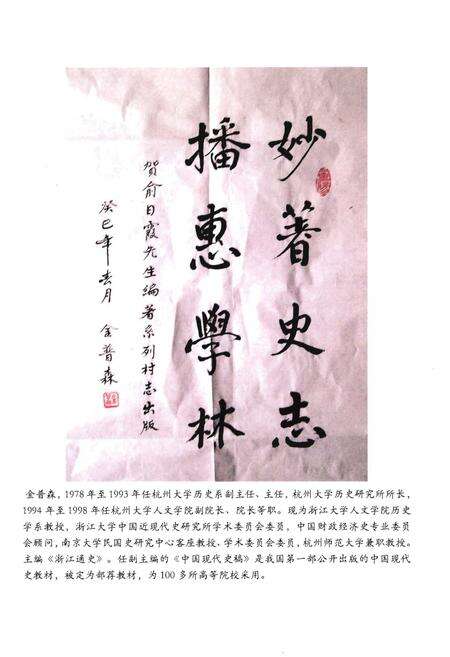 妙著史志
播惠學林
賀俞日霞先生編著系列村志出版
癸巳年 月 金普森
金普森，1978年至1993年任杭州大学历史系副主任、主任，杭州大学历史研究所所长，
1994年至1998年任杭州大学人文学院副院长、院长等职。现为浙江大学人文学院历史
学系教授，浙江大学中国近现代史研究所学术委员会委员，中国财政经济史专业委员
会顾问，南京大学民国史研究中心客座教授、学术委员会委员，杭州师范大学兼职教授。
主编《浙江通史》。任副主编的《中国现代史稿》是我国第一部公开出版的中国现代
史教材，被定为部荐教材，为100多所高等院校采用。